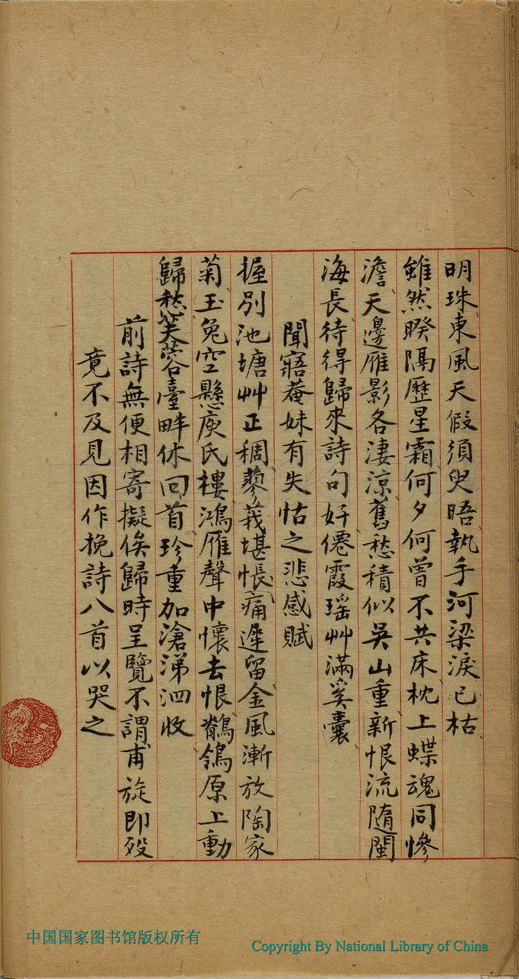 明珠東風天假須臾晤執手河梁淚已枯
雖然暌隔歷星霜何夕何曾不共床枕上蝶魂同慘
澹天邊雁影各淒涼舊愁積似吳山重新恨流隨閩
海長待得歸來詩句好僊霞瑶艸滿奚囊
聞寤菴妹有失怙之悲感賦
握別池塘艸正稠蓼莪堪悵痛遲留金風漸放陶家
菊玉兔空懸庾氏樓鴻雁聲中懷去恨鶺鴒原上動
歸愁芙蓉臺畔休回首珍重加滄涕泗收
前詩無便相寄擬俟歸時呈覽不謂甫旋即歿
竟不及見因作挽詩八首以哭之
中国国家图书馆版权所有
Copyright By National Library of China